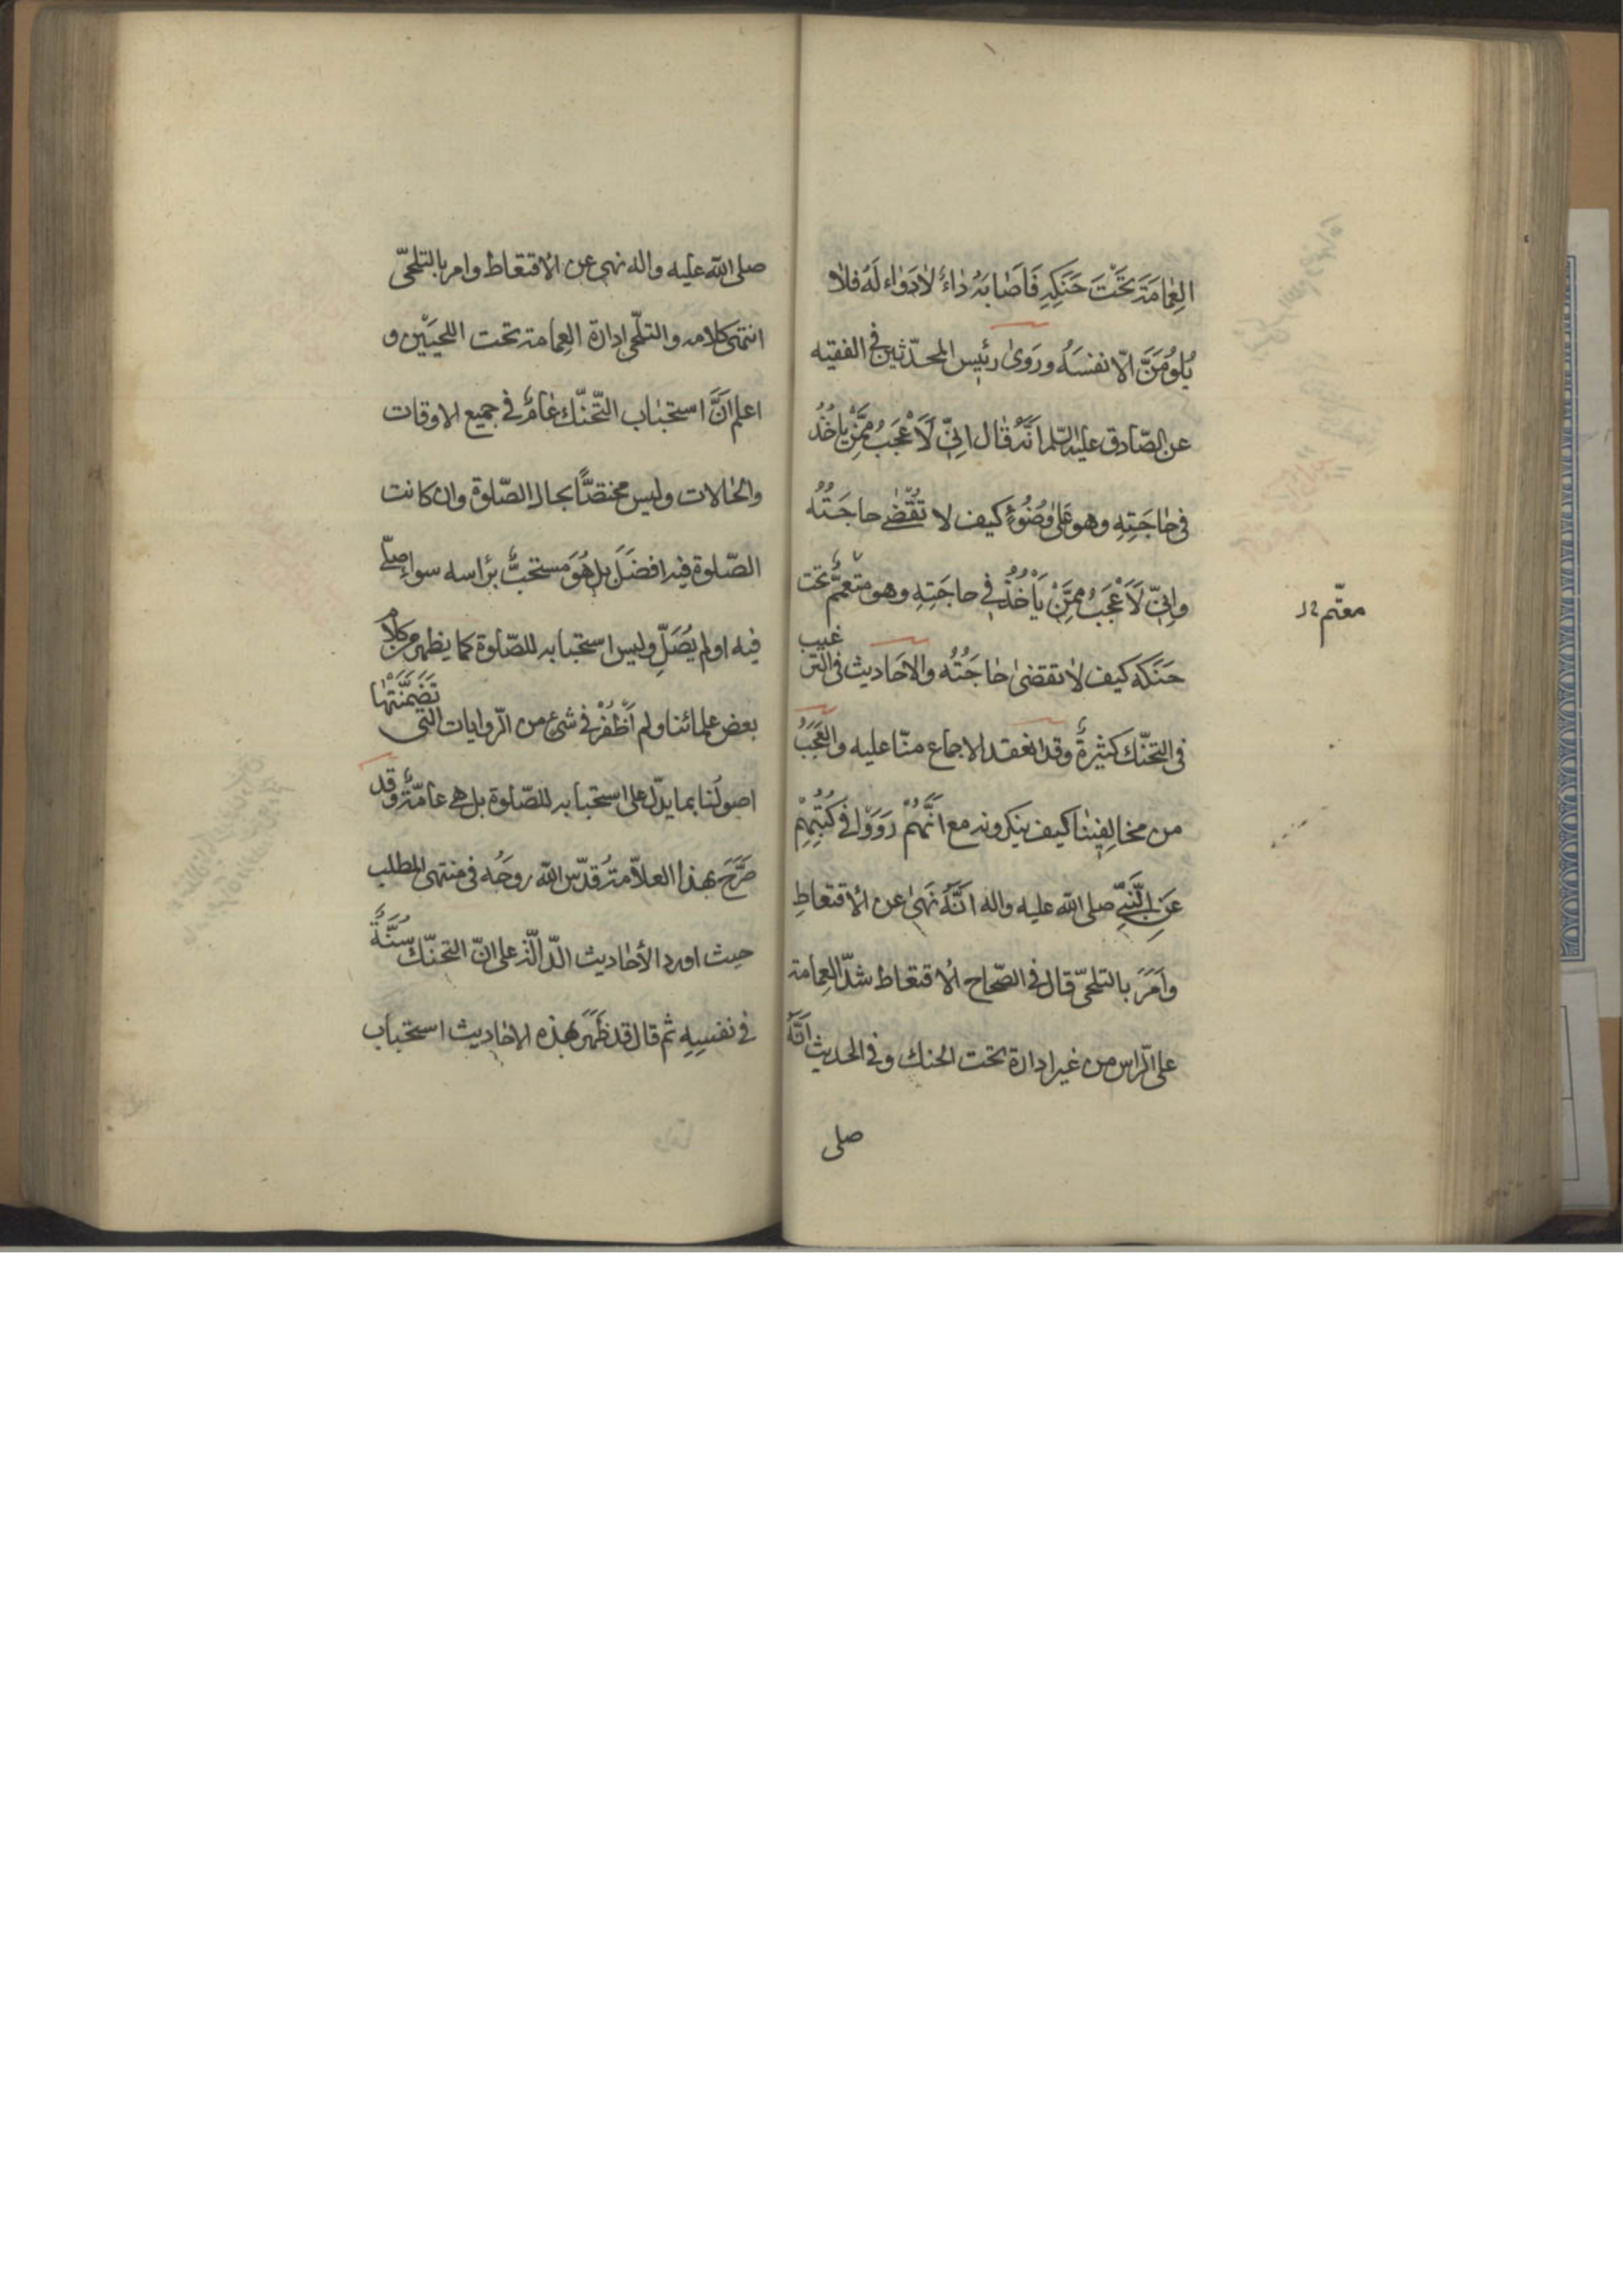 العِمامَةَ تَحْتَ حَنَكِهِ فَاَصابَهُ داءٌ لا دَوٰاءَ لَهُ فلا
يَلُومَنَّ اِلّا نفسَهُ ورَوىٰ رئيس المحدّثين في الفقيه
عن الصّادق عليه السّلم اَنَّهُ قال اِنّي لَاَعْجَبُ مِمَّنْ يأخُذُ
في حاجَتِهِ وهو عَلىٰ وُضُوءٍ كيف لا تُقْضىٰ حاجَتُهُ
واِنّي لَاَعْجَبُ مِمَّنْ يَأْخُذُ في حاجَتِهِ وهو متعمّمٌ تحت
معتّم
حَنَكِهِ كيف لا تقضىٰ حاجَتُهُ والاحَاديث في الترغيب
في التحنّك كثيرةٌ وقد انعقد الاجماع منّا عليه والعَجَبُ
من مخالِفِينا كيف ينكرونه مع اَنَّهُمْ رَوَوْا في كُتُبِهِمْ
عَنِ النَّبِيِّ صلى الله عليه واله اَنَّهُ نَهىٰ عن الاقتعاطِ
واَمَرَ بالتلحّي قال في الصّحاح الاقتعاط شدّ العِمامة
على الرّاس من غير ادارة تحت الحنك وفي الحديث اَنَّهُ
صلى
صلى الله عليه واله نهى عن الاقتعاط وامر بالتلحّي
انتهى كلامه والتلحّي ادارة العِمامة تحت اللحيَيْن و
اعلم اَنَّ استحباب التّحنّك عامٌّ في جميع الاوقات
والحالات وليس مختصًّا بحال الصّلوة وان كانت
الصّلوة فيه افضَلَ بل هُوَ مستحبٌّ برأسه سواء صلّى
فيه او لم يُصَلِّ وليس استحبابه للصّلوة كما يظهر من كلام
بعض علمائنا ولم اَظْفُرْ في شئ من الرّوايات التي تَضَمَّنَتْها
اصولُنا بما يدلّ على استحبابه للصّلوة بل هي عامّةٌ وقد
صَرَّحَ بهذا العلّامةُ قدّس الله روحَه في منتهى المطلب
حيث اورد الأحاديث الدّالّة على انّ التحنّك سُنَّةٌ
في نفسِهِ ثم قال قد ظَهَرَ بهذه الاحاديث استحباب